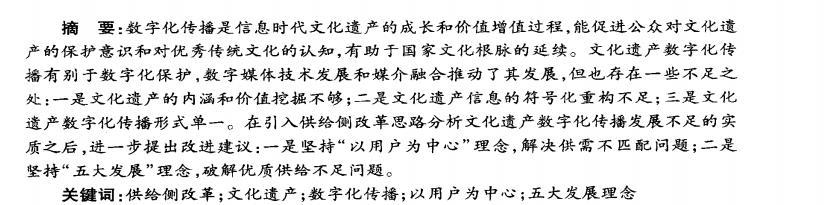 摘　要:数字化传播是信息时代文化遗产的成长和价值增值过程,能促进公众对文化遗
产的保护意识和对优秀传统文化的认知,有助于国家文化根脉的延续。文化遗产数字化传
播有别于数字化保护,数字媒体技术发展和媒介融合推动了其发展,但也存在一些不足之
处:一是文化遗产的内涵和价值挖掘不够;二是文化遗产信息的符号化重构不足;三是文化
遗产数字化传播形式单一。在引入供给侧改革思路分析文化遗产数字化传播发展不足的实
质之后,进一步提出改进建议:一是坚持“以用户为中心”理念,解决供需不匹配问题;二是
坚持“五大发展”理念,破解优质供给不足问题。
关键词:供给侧改革;文化遗产;数字化传播;以用户为中心;五大发展理念